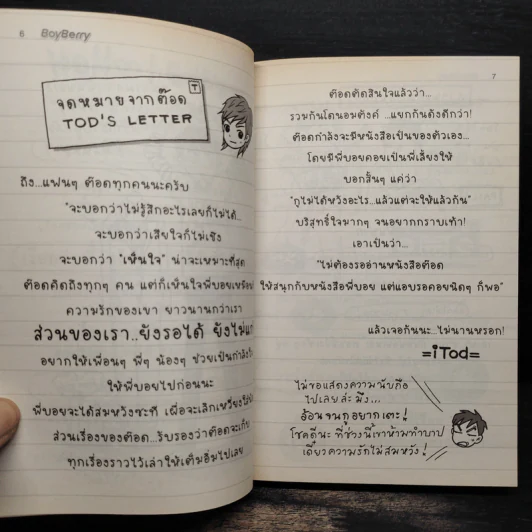 6 BoyBerry
จดหมายจากต๊อด
T
TOD'S LETTER
ถึง...แฟนๆ ต๊อดทุกคนนะครับ
"จะบอกว่าไม่รู้สึกอะไรเลยก็ไม่ได้...
จะบอกว่าเสียใจก็ไม่เชิง
จะบอกว่า "เห็นใจ" น่าจะเหมาะที่สุด
ต๊อดคิดถึงทุกๆ คน แต่ก็เห็นใจพี่บอยเหมือน
ความรักของเขา ยาวนานกว่าเรา
ส่วนของเรา..ยังรอได้ ยังไม่แก่
อยากให้เพื่อนๆ พี่ๆ น้องๆ ช่วยเป็นกำลัง
ให้พี่บอยไปก่อนนะ
พี่บอยจะได้สมหวังซะที เผื่อจะเลิกเหวี่ยง
ส่วนเรื่องของต๊อด..รับรองว่าต๊อดจะเก็บ
ทุกเรื่องราวไว้เล่าให้เต็มอิ่มไปเลย
7
ต๊อดตัดสินใจแล้วว่า...
รวมกันโดนอมตังค์ ...แยกกันดังดีกว่า!
ต๊อดกำลังจะมีหนังสือเป็นของตัวเอง...
โดยมีพี่บอยคอยเป็นพี่เลี้ยงให้
บอกสั้นๆ แค่ว่า
"กูไม่ได้หวังอะไร...แล้วแต่จะให้แล้วกัน"
บริสุทธิ์ใจมากๆ จนอยากกราบเท้า!
เอาเป็นว่า...
"ไม่ต้องรออ่านหนังสือต๊อด
ให้สนุกกับหนังสือพี่บอย แต่แอบรอคอยนิดๆ ก็พอ"
แล้วเจอกันนะ...ไม่นานหรอก!
=iTod=
ไม่ขอแสดงความนับถือ
ไปเลย ล่ะ มึง...
อ้อน จนกูอยากเตะ!
โชคดีนะ ที่ช่วงนี้เขาห้ามทำบาป
เดี๋ยวความรักไม่สมหวัง!